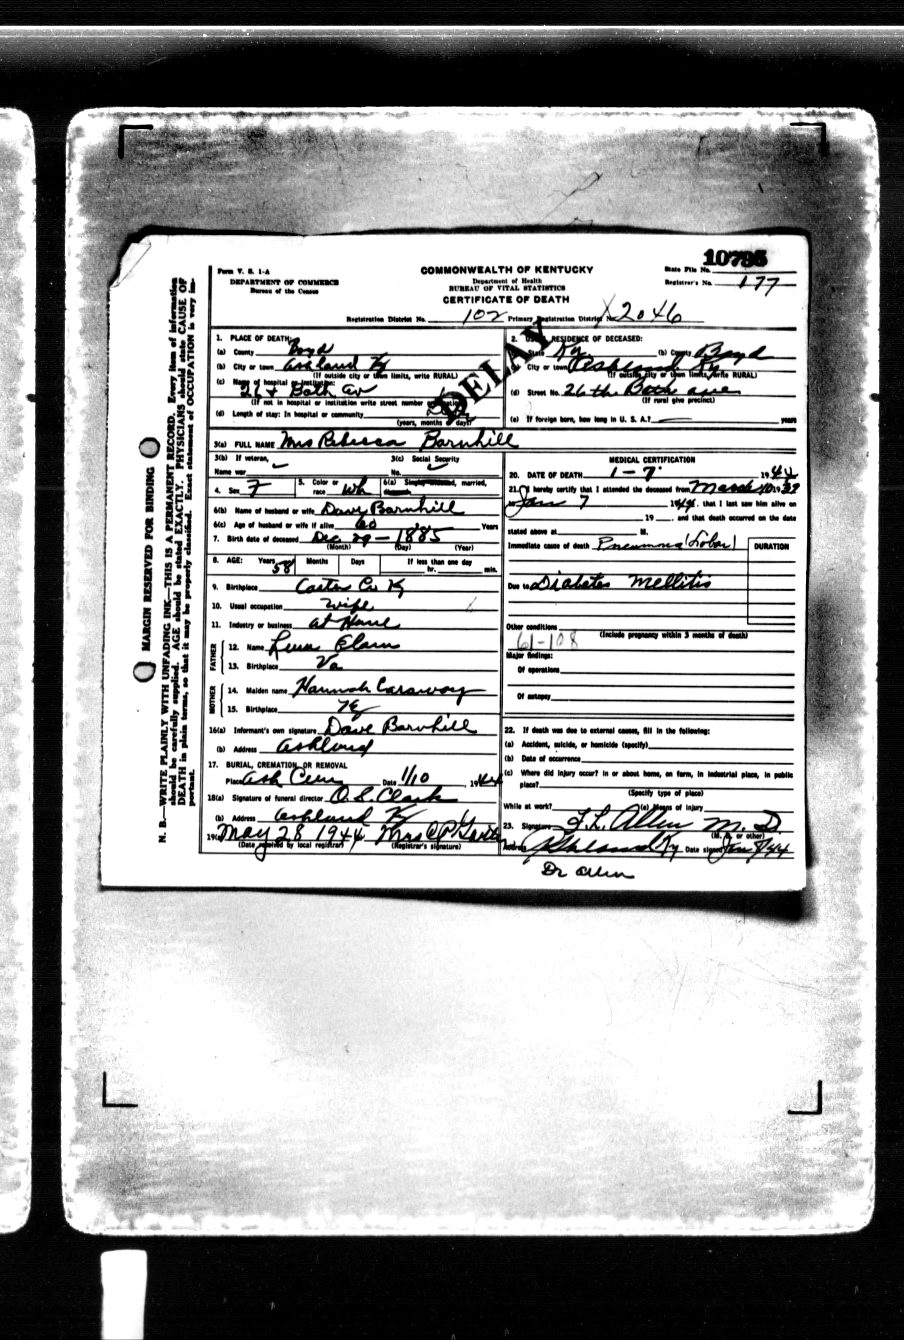 10795
Form V. S. 1-A
DEPARTMENT OF COMMERCE
Bureau of the Census
COMMONWEALTH OF KENTUCKY
Department of Health
BUREAU OF VITAL STATISTICS
CERTIFICATE OF DEATH
State File No.
Registrar's No. 177
Registration District No. 102 Primary Registration District No. 2046
DELAY
MARGIN RESERVED FOR BINDING
N. B.—WRITE PLAINLY WITH UNFADING INK—THIS IS A PERMANENT RECORD. Every item of information
should be carefully supplied. AGE should be stated EXACTLY. PHYSICIANS should state CAUSE OF
DEATH in plain terms, so that it may be properly classified. Exact statement of OCCUPATION is very im-
portant.
1. PLACE OF DEATH:
(a) County Boyd
(b) City or town Ashland Ky
(If outside city or town limits, write RURAL)
(c) Name of hospital or institution:
(If not in hospital or institution write street number or location)
(d) Length of stay: In hospital or community
(years, months or days)
2. USUAL RESIDENCE OF DECEASED:
State Ky (b) County Boyd
City or town Ashland Ky
(If outside city or town limits, write RURAL)
(d) Street No. 26th Bath ave
(If rural give precinct)
(e) If foreign born, how long in U. S. A.? years
3(a) FULL NAME Mrs Rebecca Barnhill
3(b) If veteran,
Name war
3(c) Social Security
No.
4. Sex F
5. Color or
race Wh
6(a) Single, widowed, married,
divorced
6(b) Name of husband or wife Dave Barnhill
6(c) Age of husband or wife if alive 60 Years
7. Birth date of deceased Dec 29 - 1885
(Month) (Day) (Year)
8. AGE: Years 58 Months Days If less than one day
hr. min.
9. Birthplace Carter Co K
10. Usual occupation Wife
11. Industry or business at Home
FATHER
12. Name Elam
13. Birthplace Va
MOTHER
14. Maiden name Hannah Caraway
15. Birthplace Ky
16(a) Informant's own signature Dave Barnhill
(b) Address Ashland
17. BURIAL, CREMATION, OR REMOVAL
Place Ash Cem Date 1/10 1944
18(a) Signature of funeral director O. S. Clark
(b) Address Ashland Ky
19(a) May 28 1944 Mrs C P
(Date received by local registrar) (Registrar's signature)
MEDICAL CERTIFICATION
20. DATE OF DEATH 1-7 1944
21. I hereby certify that I attended the deceased from March 10 1939
to Jan 7 1944, that I last saw him alive on
19 and that death occurred on the date
stated above at M.
Immediate cause of death Pneumonia (Lobar)
DURATION
Due to Diabetes Mellitis
Other conditions
(Include pregnancy within 3 months of death)
61-108
Major findings:
Of operations
Of autopsy
22. If death was due to external causes, fill in the following:
(a) Accident, suicide, or homicide (specify)
(b) Date of occurrence
(c) Where did injury occur? In or about home, on farm, in industrial place, in public
place?
(Specify type of place)
While at work? (e) Means of injury
23. Signature F. L. Allen M. D.
(M. D. or other)
Address Ashland Ky Date signed Jan 8/44
Dr Allen